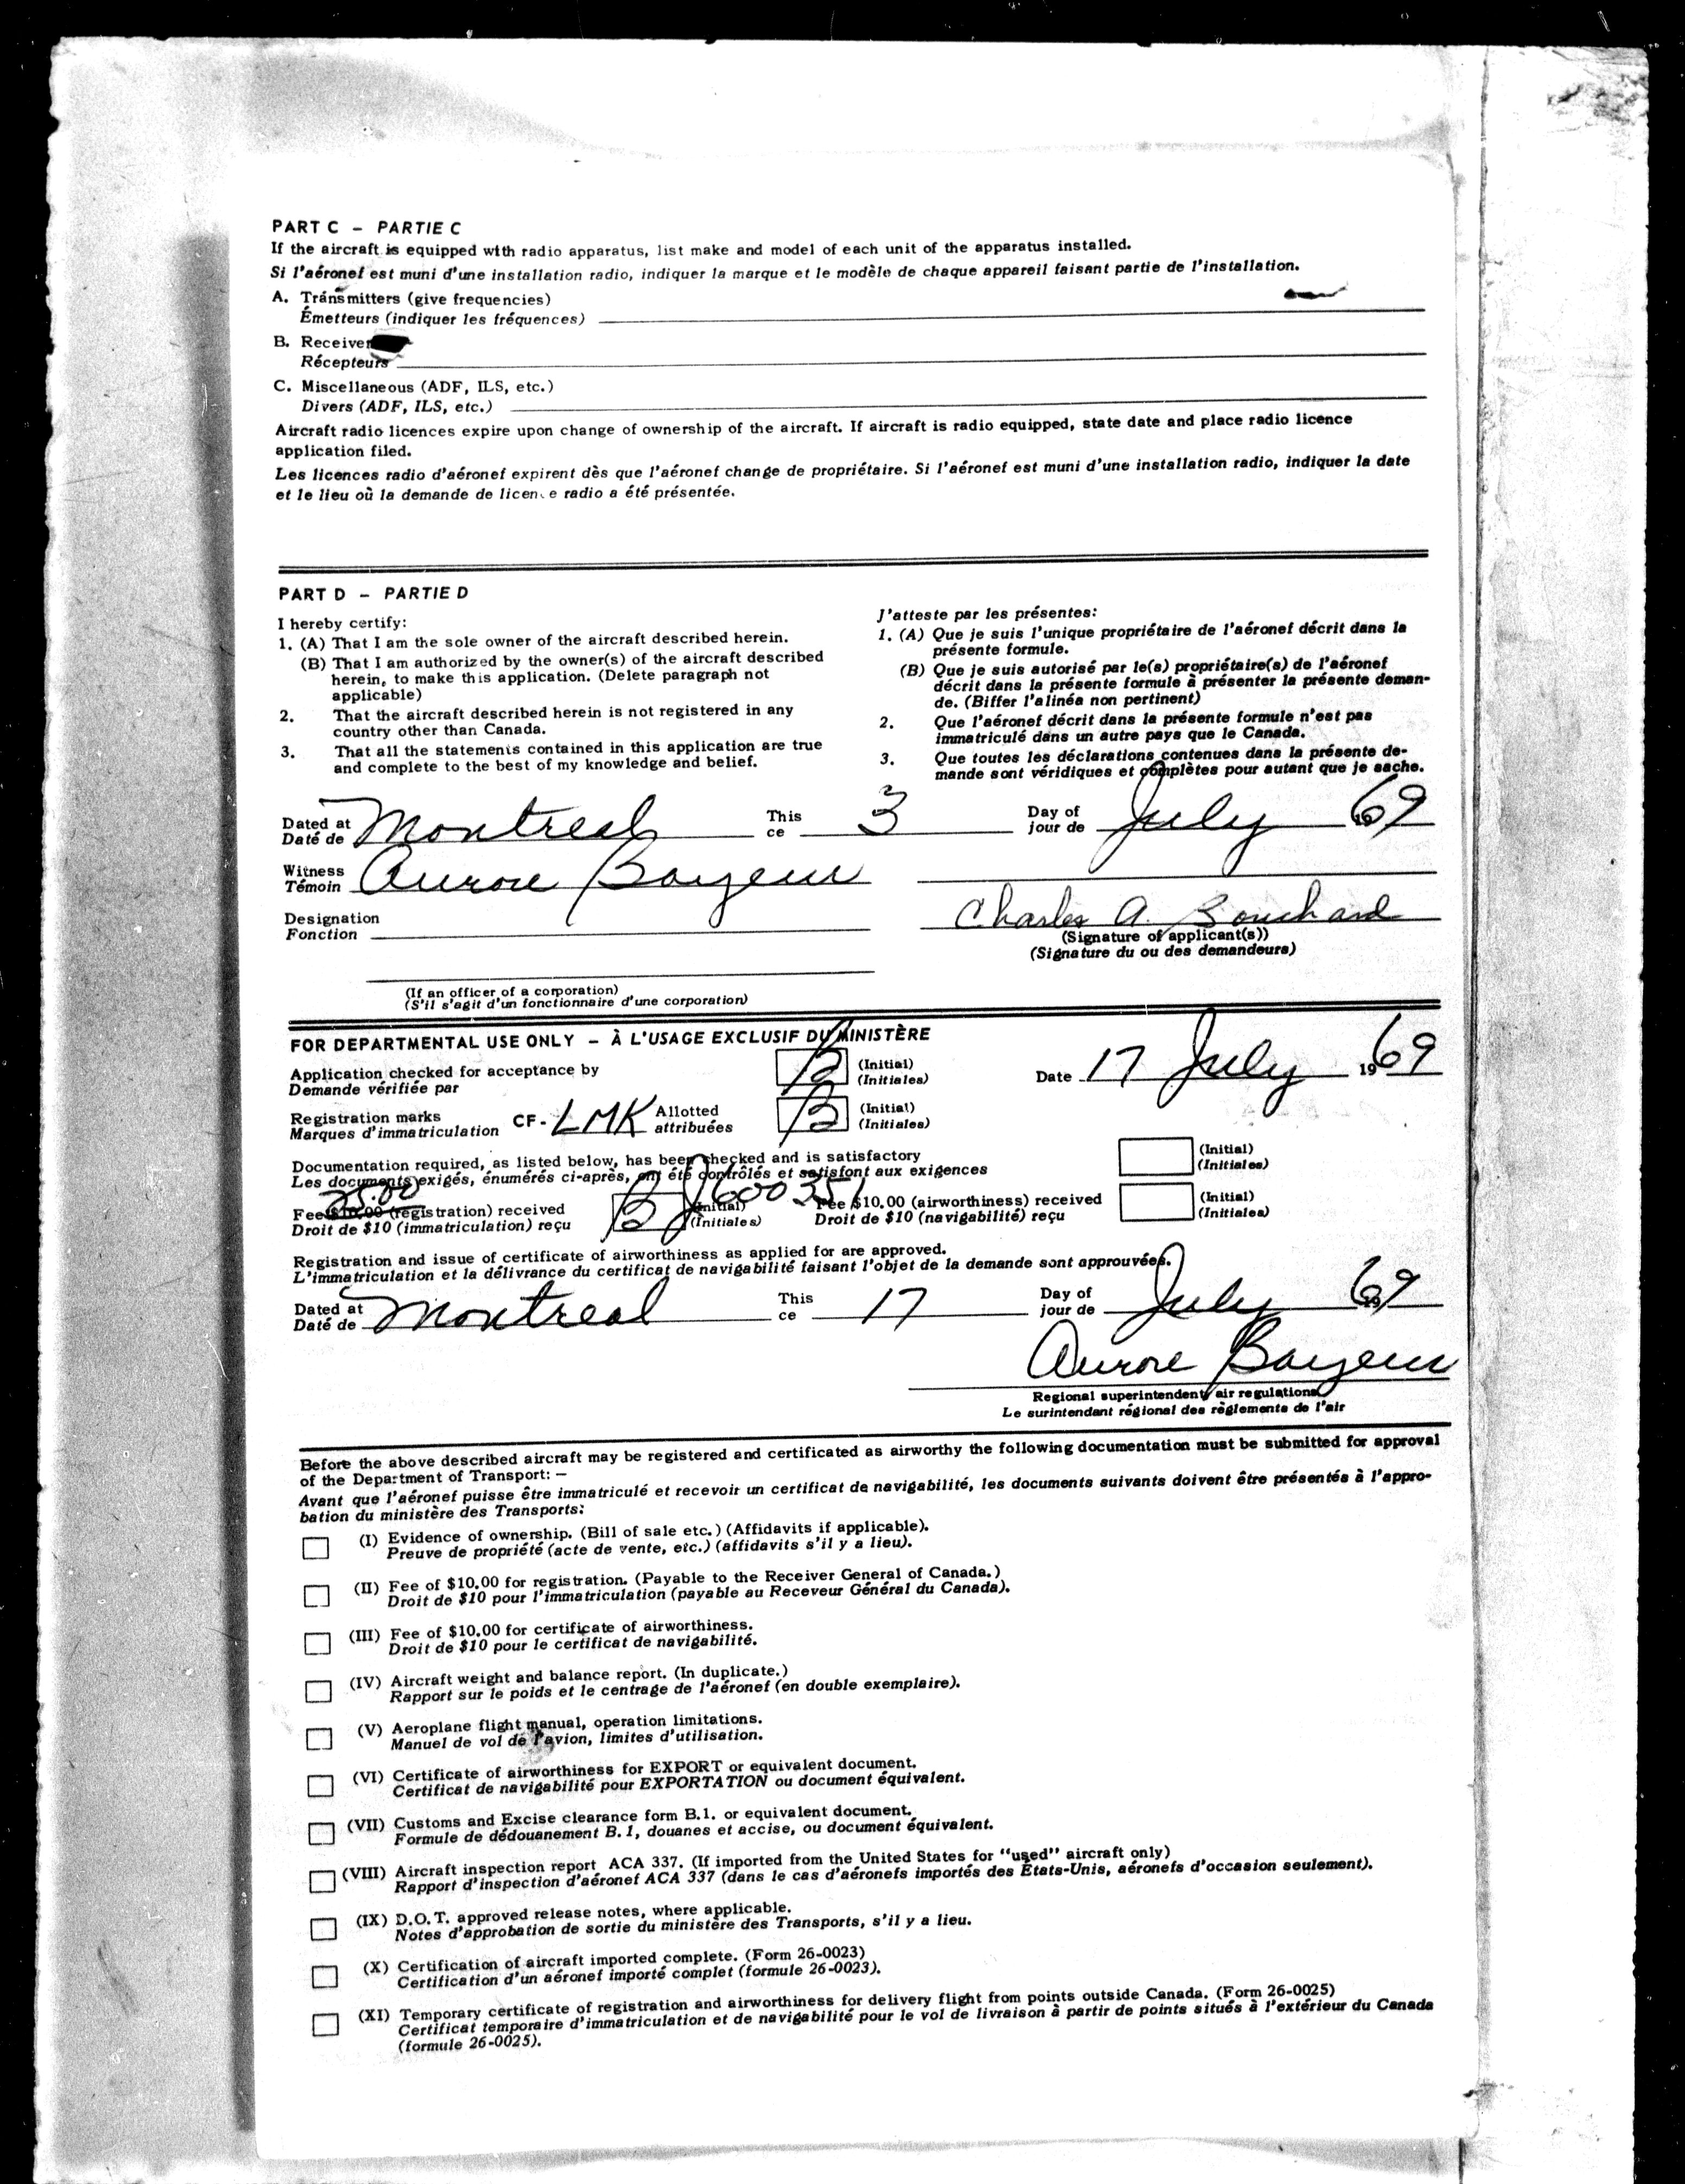 PART C - PARTIE C
If the aircraft is equipped with radio apparatus, list make and model of each unit of the apparatus installed.
Si l'aéronef est muni d'une installation radio, indiquer la marque et le modèle de chaque appareil faisant partie de l'installation.
A. Transmitters (give frequencies)
Émetteurs (indiquer les fréquences)
B. Receiver
Récepteurs
C. Miscellaneous (ADF, ILS, etc.)
Divers (ADF, ILS, etc.)
Aircraft radio licences expire upon change of ownership of the aircraft. If aircraft is radio equipped, state date and place radio licence
application filed.
Les licences radio d'aéronef expirent dès que l'aéronef change de propriétaire. Si l'aéronef est muni d'une installation radio, indiquer la date
et le lieu où la demande de licence radio a été présentée.
PART D - PARTIE D
I hereby certify:
1. (A) That I am the sole owner of the aircraft described herein.
(B) That I am authorized by the owner(s) of the aircraft described
herein, to make this application. (Delete paragraph not
applicable)
2. That the aircraft described herein is not registered in any
country other than Canada.
3. That all the statements contained in this application are true
and complete to the best of my knowledge and belief.
J'atteste par les présentes:
1. (A) Que je suis l'unique propriétaire de l'aéronef décrit dans la
présente formule.
(B) Que je suis autorisé par le(s) propriétaire(s) de l'aéronef
décrit dans la présente formule à présenter la présente deman-
de. (Biffer l'alinéa non pertinent)
2. Que l'aéronef décrit dans la présente formule n'est pas
immatriculé dans un autre pays que le Canada.
3. Que toutes les déclarations contenues dans la présente de-
mande sont véridiques et complètes pour autant que je sache.
Dated at Montreal This 3 Day of July 69
Daté de ce jour de
Witness Aurore
Témoin
Designation
Fonction
Charles A. Bouchard
(Signature of applicant(s))
(Signature du ou des demandeurs)
(If an officer of a corporation)
(S'il s'agit d'un fonctionnaire d'une corporation)
FOR DEPARTMENTAL USE ONLY - À L'USAGE EXCLUSIF DU MINISTÈRE
Application checked for acceptance by B (Initial) Date 17 July 1969
Demande vérifiée par (Initiales)
Registration marks CF- LMK Allotted B (Initial)
Marques d'immatriculation attribuées (Initiales)
Documentation required, as listed below, has been checked and is satisfactory (Initial)
Les documents exigés, énumérés ci-après, ont été contrôlés et satisfont aux exigences (Initiales)
25.00 J600351
Fee $10.00 (registration) received B (Initial) Fee $10.00 (airworthiness) received (Initial)
Droit de $10 (immatriculation) reçu (Initiales) Droit de $10 (navigabilité) reçu (Initiales)
Registration and issue of certificate of airworthiness as applied for are approved.
L'immatriculation et la délivrance du certificat de navigabilité faisant l'objet de la demande sont approuvées.
Dated at Montreal This 17 Day of July 69
Daté de ce jour de
Aurore
Regional superintendent, air regulations
Le surintendant régional des règlements de l'air
Before the above described aircraft may be registered and certificated as airworthy the following documentation must be submitted for approval
of the Department of Transport: -
Avant que l'aéronef puisse être immatriculé et recevoir un certificat de navigabilité, les documents suivants doivent être présentés à l'appro-
bation du ministère des Transports:
(I) Evidence of ownership. (Bill of sale etc.) (Affidavits if applicable).
Preuve de propriété (acte de vente, etc.) (affidavits s'il y a lieu).
(II) Fee of $10.00 for registration. (Payable to the Receiver General of Canada.)
Droit de $10 pour l'immatriculation (payable au Receveur Général du Canada).
(III) Fee of $10.00 for certificate of airworthiness.
Droit de $10 pour le certificat de navigabilité.
(IV) Aircraft weight and balance report. (In duplicate.)
Rapport sur le poids et le centrage de l'aéronef (en double exemplaire).
(V) Aeroplane flight manual, operation limitations.
Manuel de vol de l'avion, limites d'utilisation.
(VI) Certificate of airworthiness for EXPORT or equivalent document.
Certificat de navigabilité pour EXPORTATION ou document équivalent.
(VII) Customs and Excise clearance form B.1. or equivalent document.
Formule de dédouanement B.1, douanes et accise, ou document équivalent.
(VIII) Aircraft inspection report ACA 337. (If imported from the United States for "used" aircraft only)
Rapport d'inspection d'aéronef ACA 337 (dans le cas d'aéronefs importés des États-Unis, aéronefs d'occasion seulement).
(IX) D.O.T. approved release notes, where applicable.
Notes d'approbation de sortie du ministère des Transports, s'il y a lieu.
(X) Certification of aircraft imported complete. (Form 26-0023)
Certification d'un aéronef importé complet (formule 26-0023).
(XI) Temporary certificate of registration and airworthiness for delivery flight from points outside Canada. (Form 26-0025)
Certificat temporaire d'immatriculation et de navigabilité pour le vol de livraison à partir de points situés à l'extérieur du Canada
(formule 26-0025).